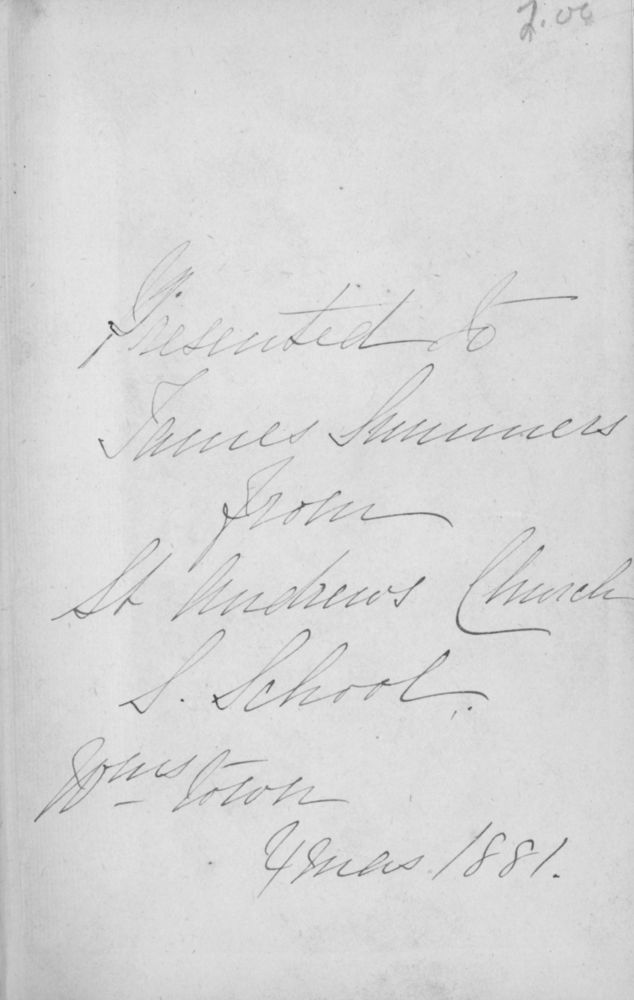 2.00
Presented to
James Summers
from
St Andrews Church
S. School.
Wms Town
Xmas 1881.